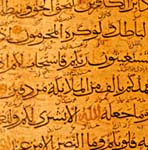 الباطل ولو كره المجرمون
تستغيثون ربكم فاستجاب لكم
ممدكم بالف من الملائكة مردفين
وما جعله الله الا بشرى لكم
به قلوبكم وما النصر الا من عند